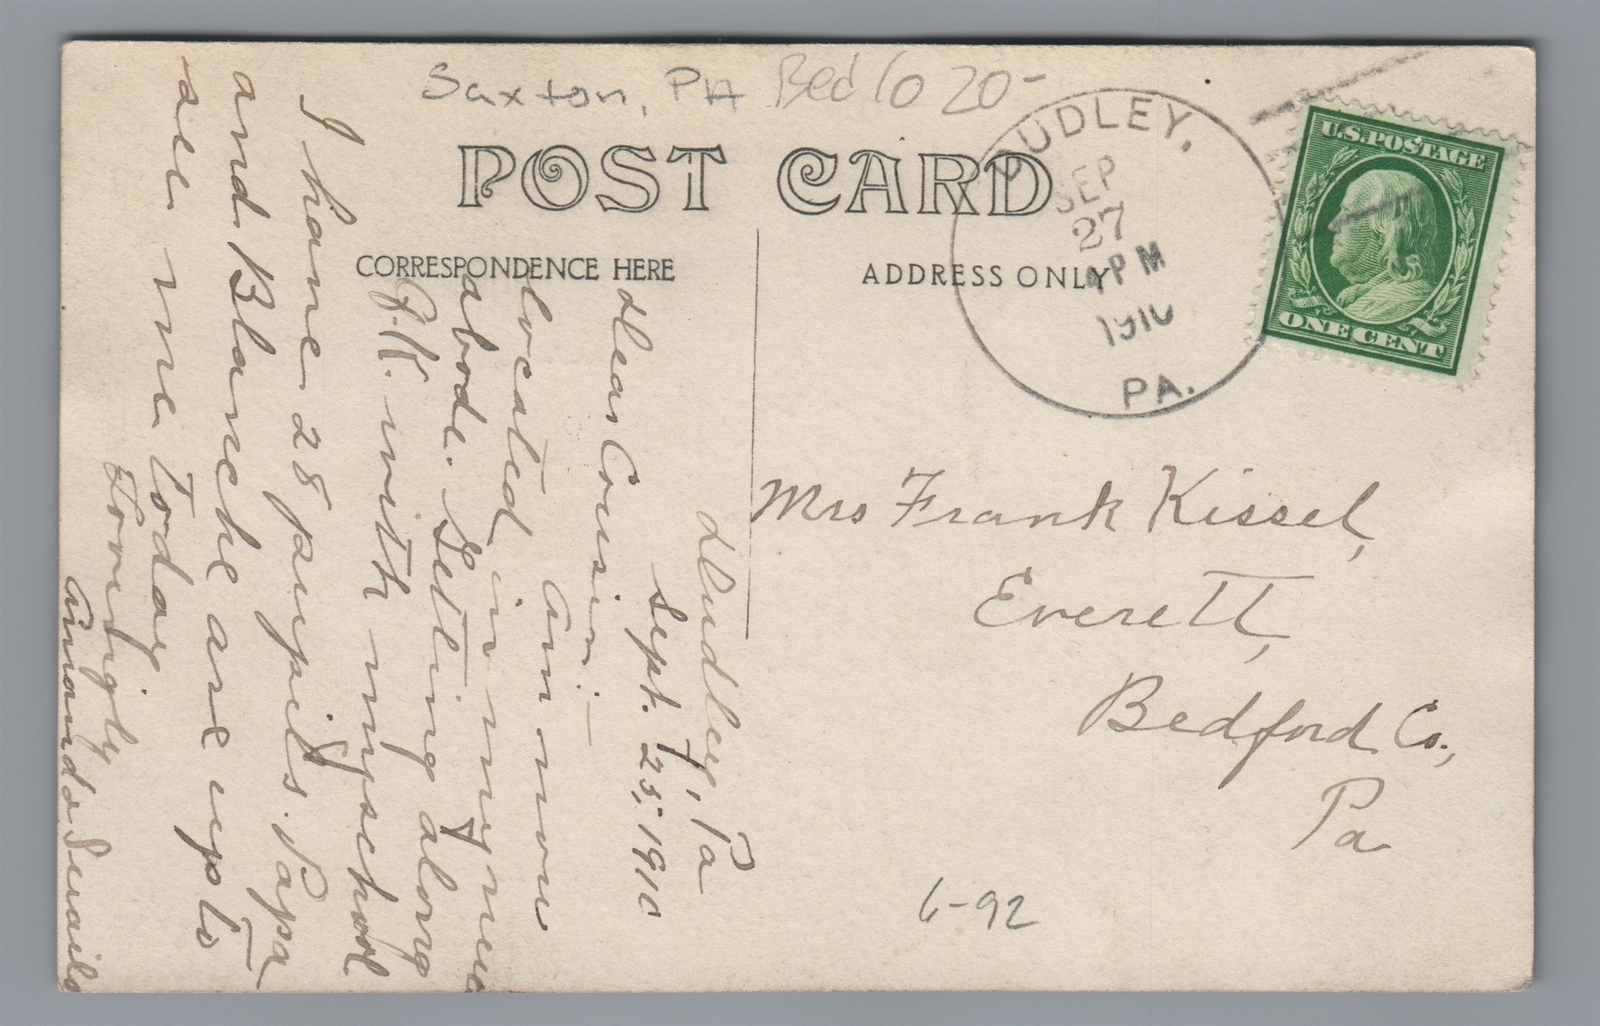 Saxton, PA Bed Co 20-
POST CARD
CORRESPONDENCE HERE
ADDRESS ONLY
DUDLEY,
SEP
27
PM
1910
PA.
U.S. POSTAGE
ONE CENT
Mrs Frank Kissel,
Everett,
Bedford Co.,
Pa
6-92
Dudley, Pa
Sept. 25, 1910
Dear Cousin:—
Am now
located in my new
abode. Getting along
O.K. with my school
I have 28 pupils. Papa
and Blanche are up to
see me today
Lovingly
Amanda